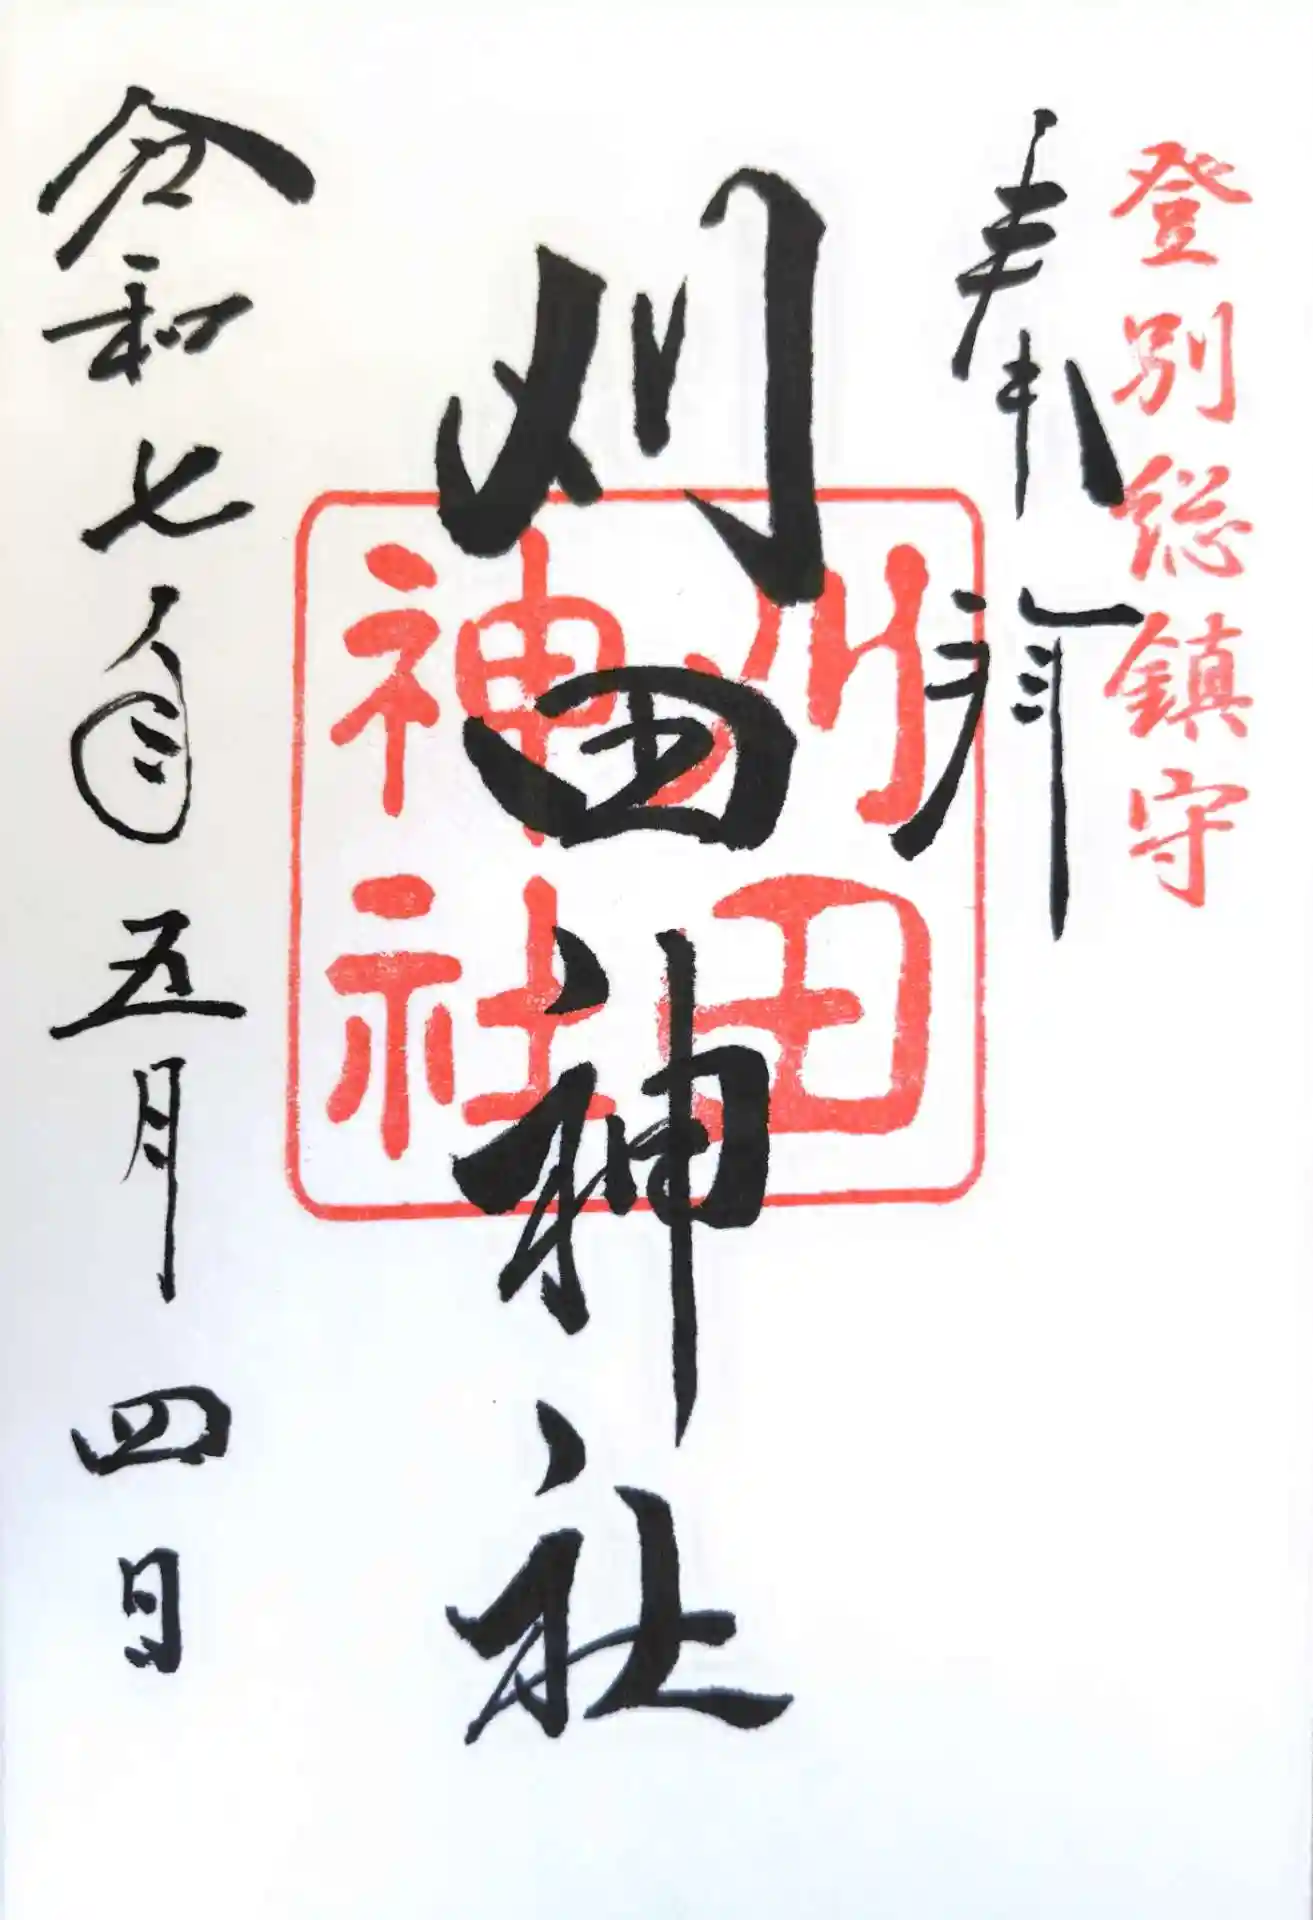 登別総鎮守
奉拝
刈田神社
刈田
神社
令和七年五月四日